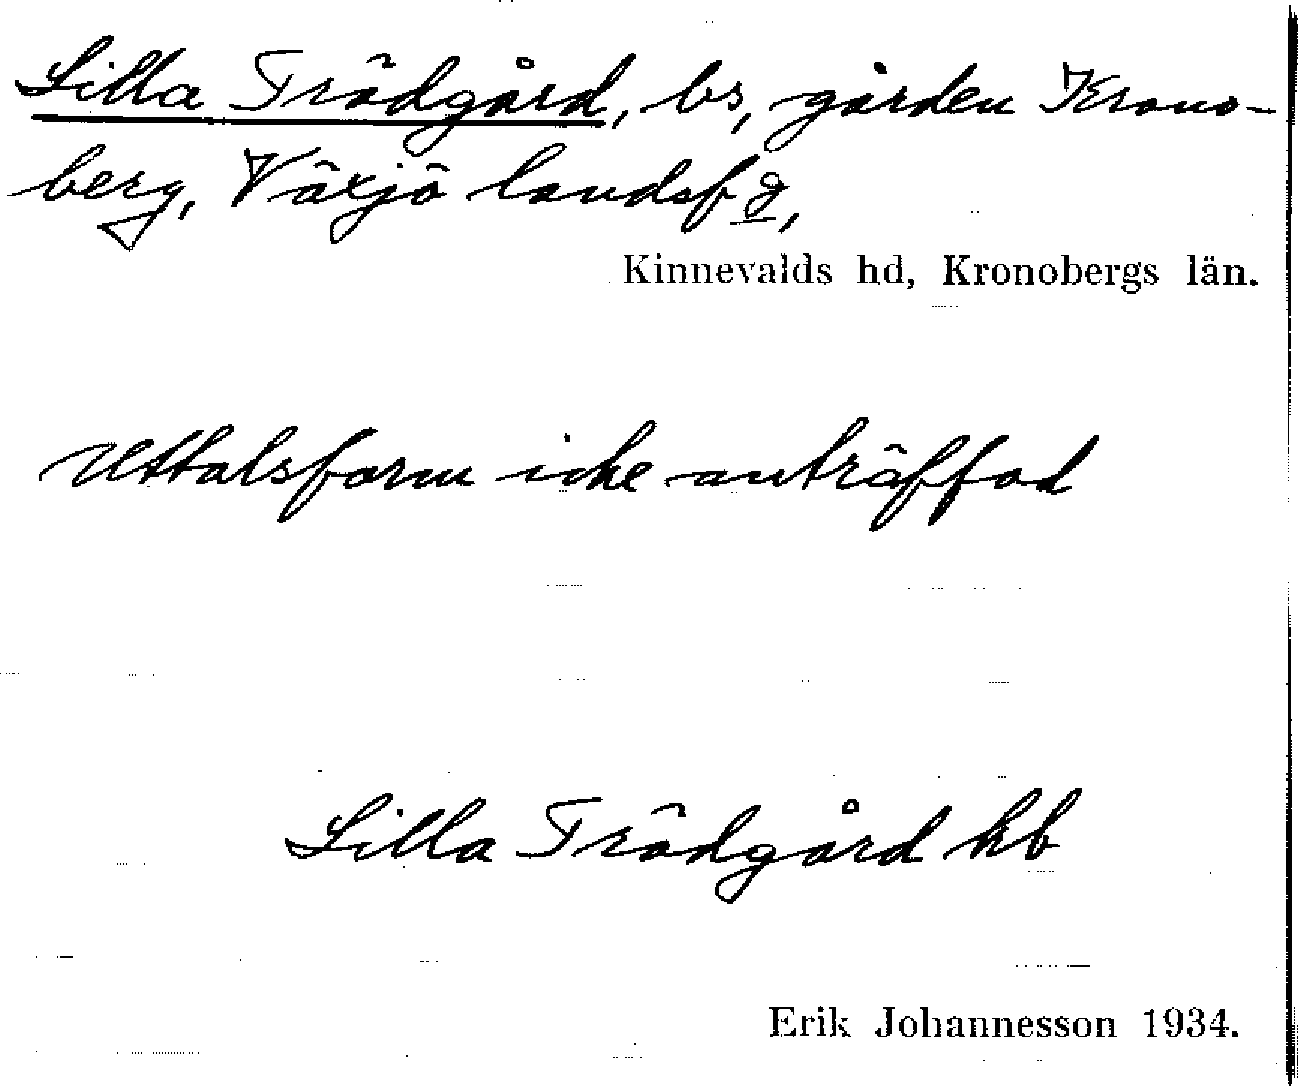 Lilla Trädgård, bs, gården Krono-
berg, Växjö landsfg,
Kinnevalds hd, Kronobergs län.
Uttalsform icke anträffad
Lilla Trädgård kb
Erik Johannesson 1934.